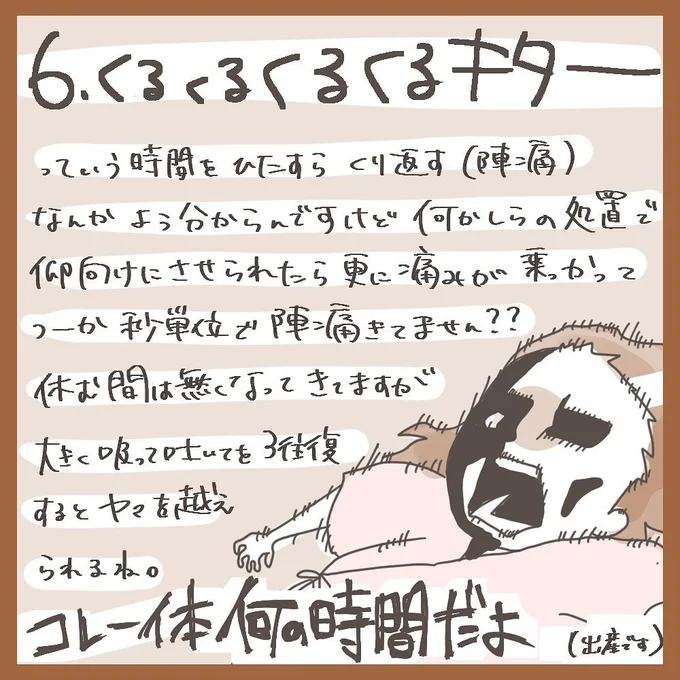 6.くるくるくるくるキター
っていう時間をひたすらくり返す(陣痛)
なんかよう分からんですけど何かしらの処置で
仰向けにさせられたら更に痛みが乗っかって
つーか秒単位で陣痛きてません??
休む間は無くなってきてますが
大きく吸って吐いてを3往復
するとヤマを越え
られるね。
コレ一体何の時間だよ
(出産です)